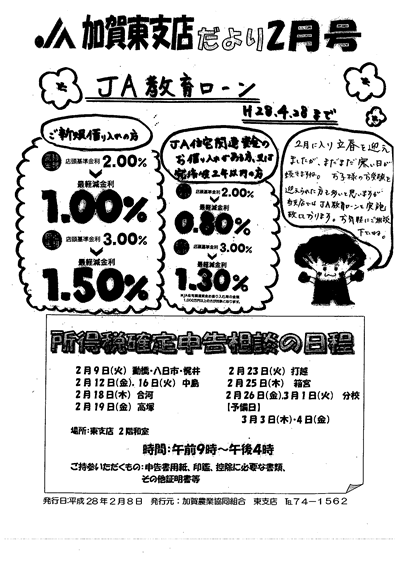 JA 加賀東支店だより2月号
JA教育ローン
H28.4.28まで
ご新規借り入れの方
店頭基準金利 2.00%
最軽減金利
1.00%
店頭基準金利 3.00%
最軽減金利
1.50%
JA住宅関連資金の
お借り入れがある方、又は
完済後2年以内の方
店頭基準金利 2.00%
最軽減金利
0.80%
店頭基準金利 3.00%
最軽減金利
1.30%
2月に入り立春を迎え
ましたが、まだまだ寒い日が
続きますね。お子様のお受験を
迎えられた方も多いと思いますが
当支店ではJA教育ローンを実施
致しております。お気軽にご相談
下さいね。
所得税確定申告相談の日程
2月9日(火) 動橋・八日市・梶井
2月12日(金)、16日(火) 中島
2月18日(木) 合河
2月19日(金) 高塚
2月23日(火) 打越
2月25日(木) 箱宮
2月26日(金)、3月1日(火) 分校
【予備日】
3月3日(木)・4日(金)
場所:東支店 2階和室
時間:午前9時～午後4時
ご持参いただくもの:申告書用紙、印鑑、控除に必要な書類、
その他証明書等
発行日:平成28年2月8日 発行元:加賀農業協同組合 東支店 ℡74-1562